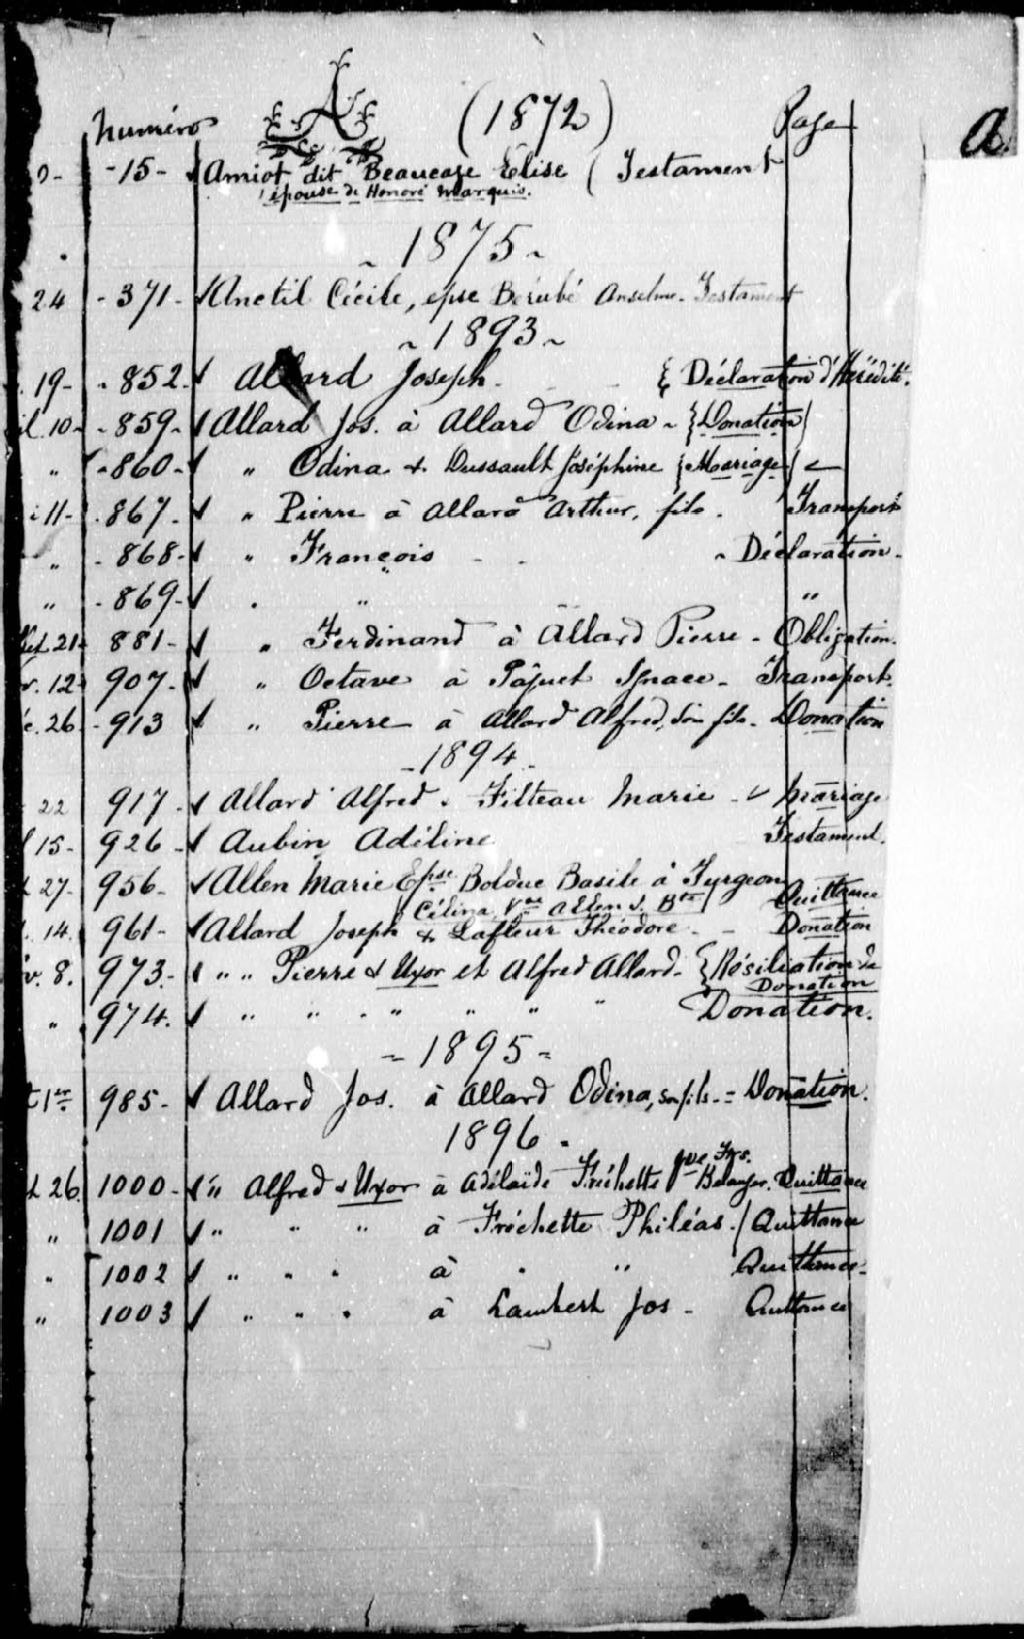 numéro A (1872) Page
a
-15- Amiot dit Beaucage Elise ( Testament
épouse de Honoré Marquis.
~ 1875 ~
24 - 371 - Anctil Cécile, epse Bérubé Anselme - Testament
~ 1893 ~
19 - - 852 - Allard Joseph - { Déclaration d'Hérédité.
il 10 - - 859 - Allard Jos. à Allard Odina ~ { Donation )
" - 860 - " Odina & Dussault Joséphine { Mariage )
i 11 - - 867 - " Pierre à Allard Arthur, fils . Transport
" - 868 - " François - - ~ Déclaration -
" - 869 - . " "
llet 21 - 881 - " Ferdinand à Allard Pierre - Obligation.
v. 12 - 907 - " Octave à Pâquet Ignace - Transport.
c. 26 - 913 " Pierre à Allard Alfred, son fils - Donation
- 1894 -
22 917 - Allard Alfred . Filteau Marie - Mariage
l 15 - 926 - Aubin Adéline Testament.
27 - 956 - Allen Marie Epse Bolduc Basile à Turgeon Quittance
Célina, Vve Allen J. Bte
14. 961 - Allard Joseph & Lafleur Théodore - - Donation
v. 8. 973. - " " Pierre & Uxor et Alfred Allard - { Résiliation de
Donation
" 974. " " . " " " " Donation.
- 1895 -
t 1er 985 - Allard Jos. à Allard Odina, son fils - = Donation.
1896 .
26. 1000 - " Alfred & Uxor à Adélaïde Fréchette Vve Frs. Belanger. Quittance
" 1001 " " " à Fréchette Philéas - / Quittance
" 1002 " " " à " " Quittance -
" 1003 " " " à Lambert Jos - Quittance